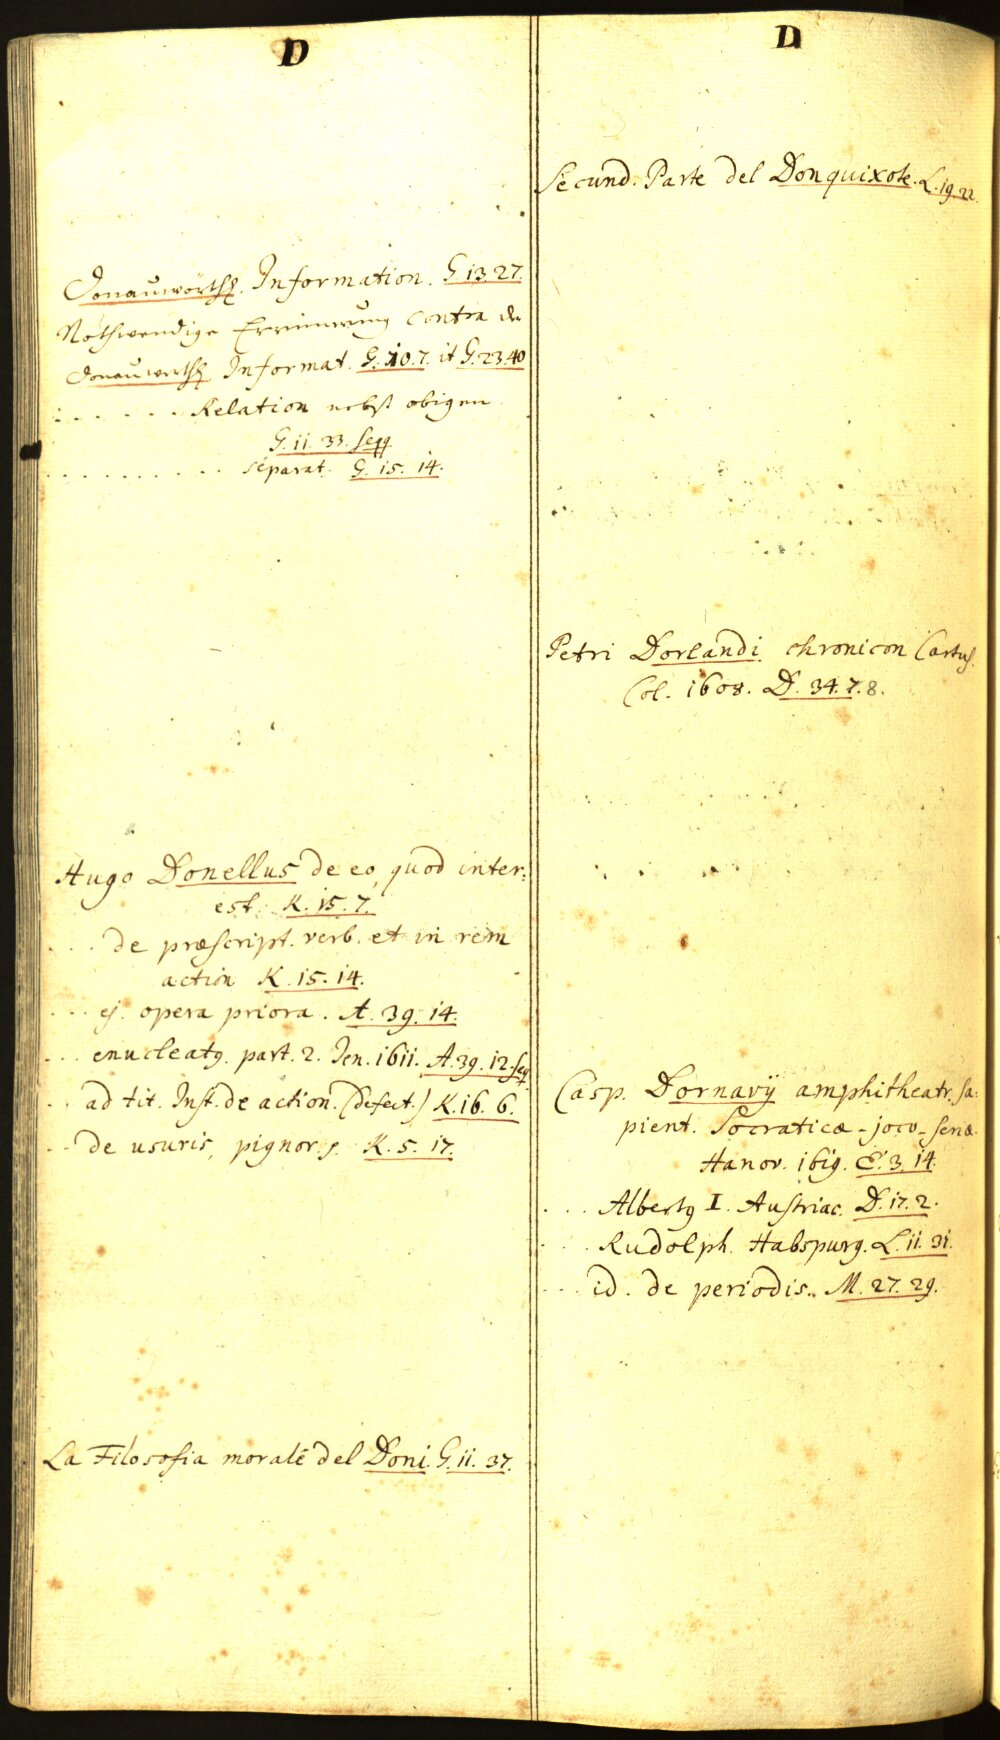 D
Donauwörthsch. Information. G 13. 27.
Nothwendige Erinnerung contra die
Donauwerthsch Informat. G. 10. 7. it G. 23. 40
: . . . . . Relation nebst obigen
G. 11. 33. seqq.
. . . . . . . . . . separat. G. 15. 14.
Hugo Donellus de eo, quod inter:
est. K. 15. 7.
. . . de præscript. verb. et in rem
action K. 15. 14.
. . . ej. opera priora. A. 39. 14.
. . . enucleatq. part. 2. Jen. 1611. A. 39. 12. seq
. . ad tit. Inst. de action. (defect.) K. 16. 6.
. . de usuris, pignor. K. 5. 17.
La Filosofia morale del Doni. G. 11. 37.
D
Secund. Parte del Donquixote. L. 19. 22.
Petri Dorlandi chronicon Cartus.
Col. 1608. D. 34. 7. 8.
Casp. Dornavÿ amphitheatr. sa:
pient. Socraticæ - joco - seriæ.
Hanov. 1619. E. 3. 14.
. . . Albertq I. Austriac. D. 17. 2.
. . . Rudolph. Habspurg. L. 11. 31.
. . . id. de periodis. M. 27. 29.